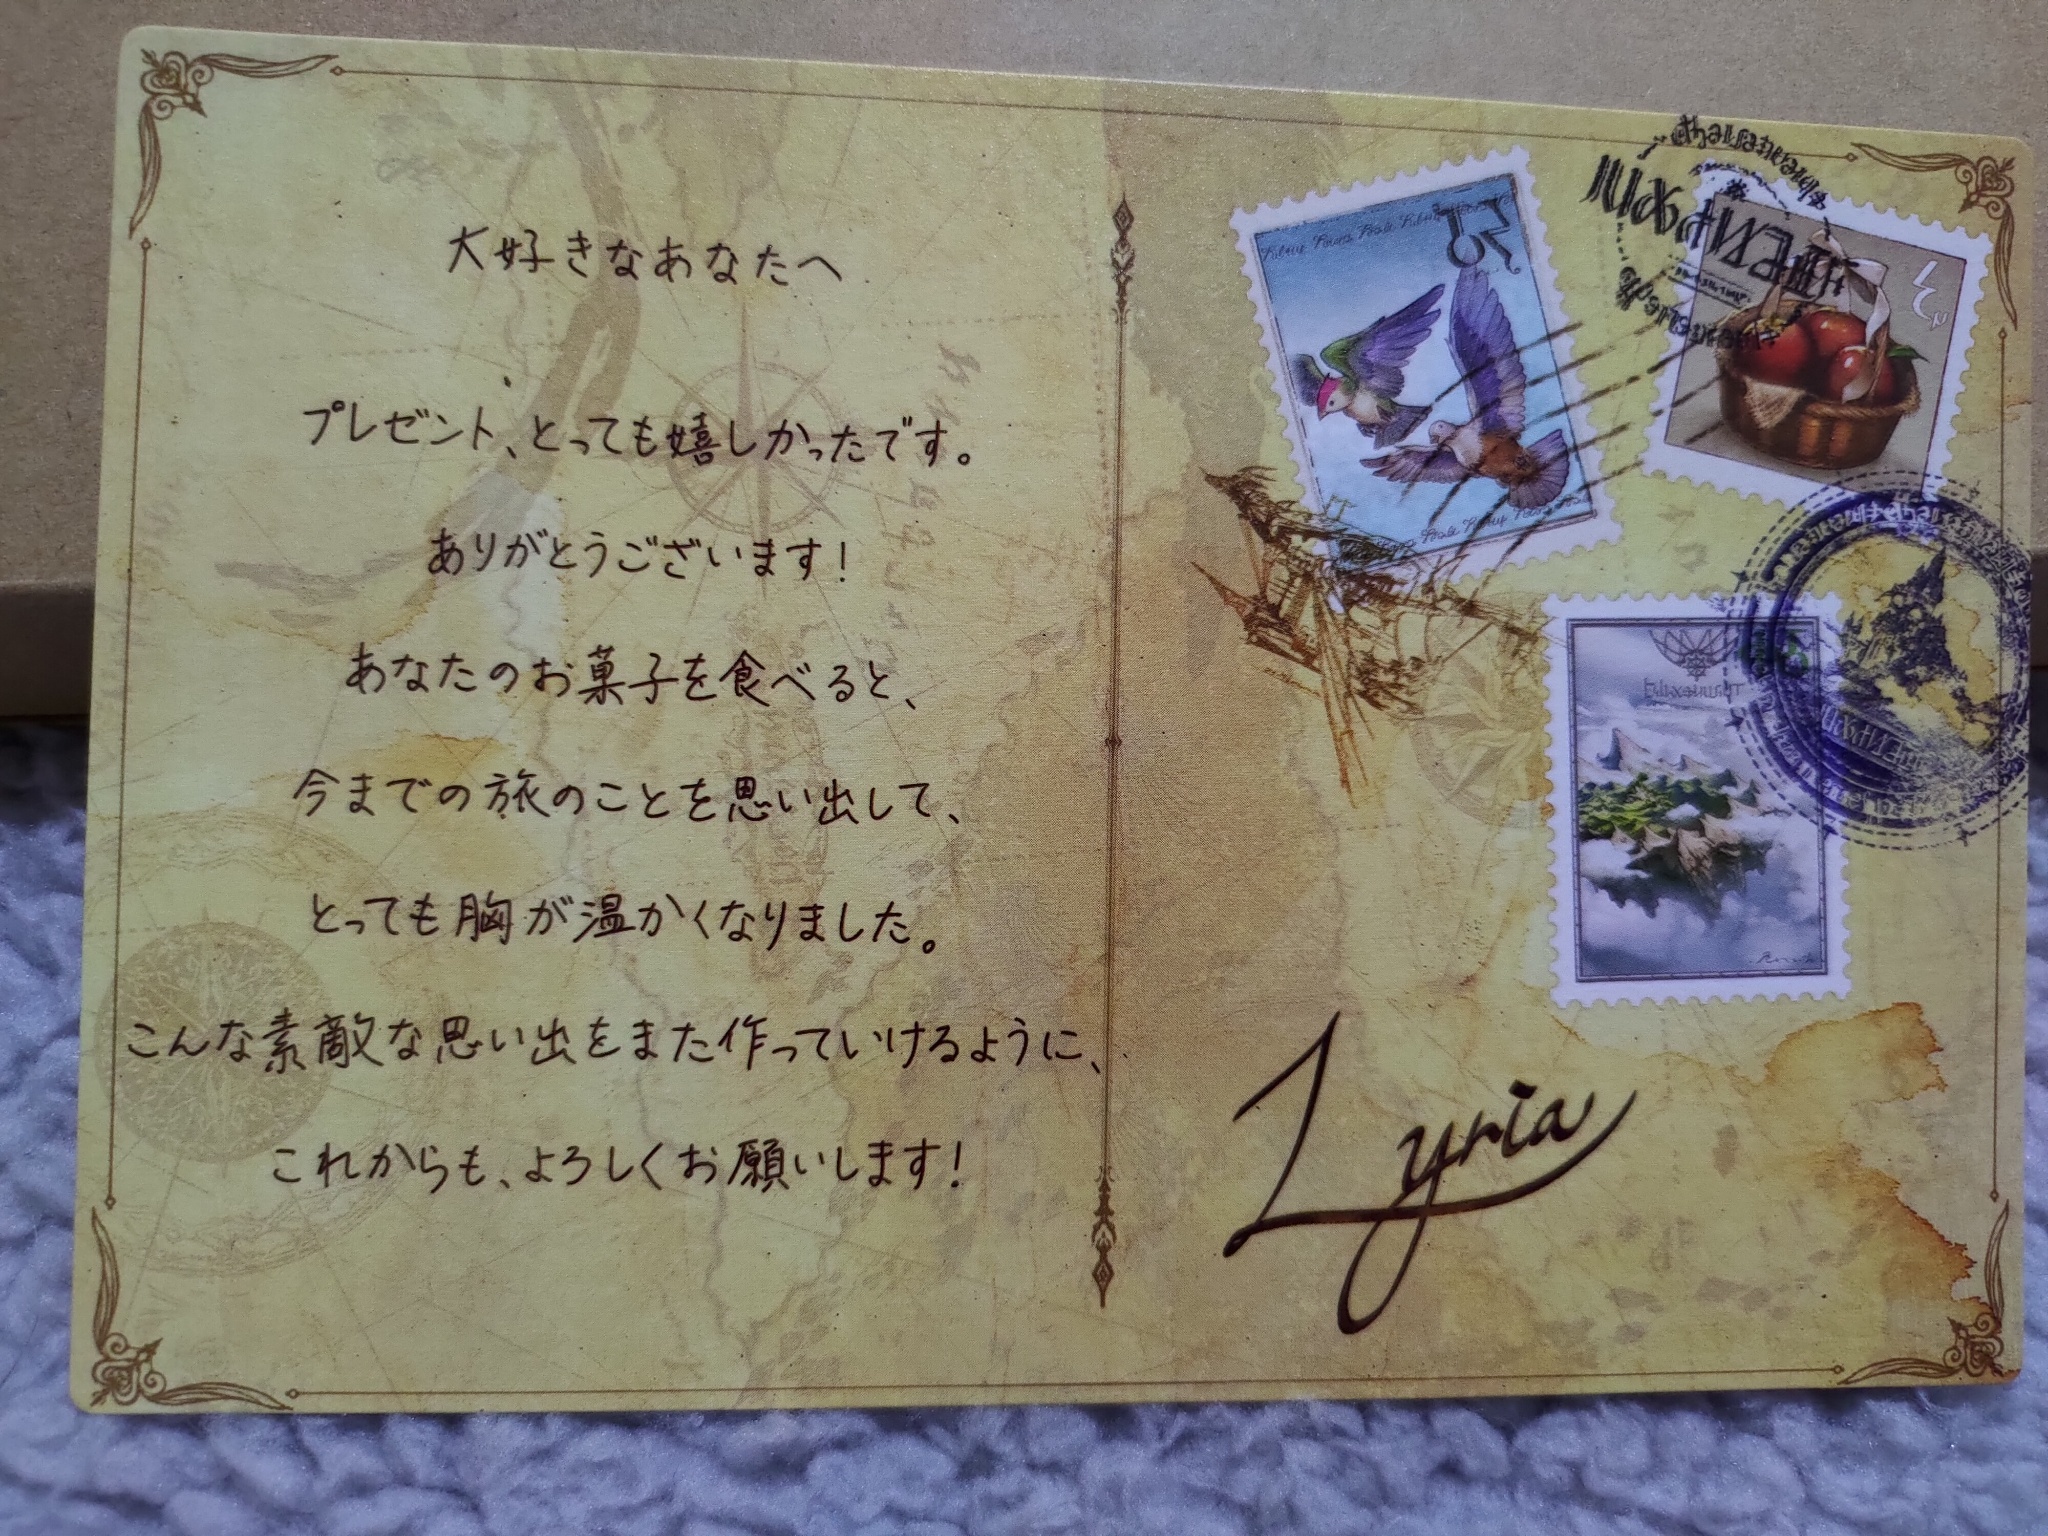 大好きなあなたへ
プレゼント、とっても嬉しかったです。
ありがとうございます!
あなたのお菓子を食べると、
今までの旅のことを思い出して、
とっても胸が温かくなりました。
こんな素敵な思い出をまた作っていけるように、
これからも、よろしくお願いします!
Lyria